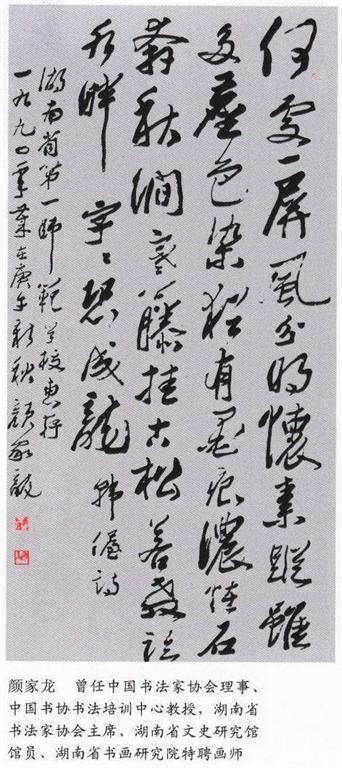 何處一屏風分明懷素蹤雖
多塵色染猶有墨痕濃怪石
奔秋澗寒藤挂古松若教臨
水畔字々恐成龍 韓偓詩
湖南省第一師範学校惠存
一九九〇年歲在庚午新秋顏家龍
颜家龙 曾任中国书法家协会理事、
中国书协书法培训中心教授，湖南省
书法家协会主席、湖南省文史研究馆
馆员、湖南省书画研究院特聘画师